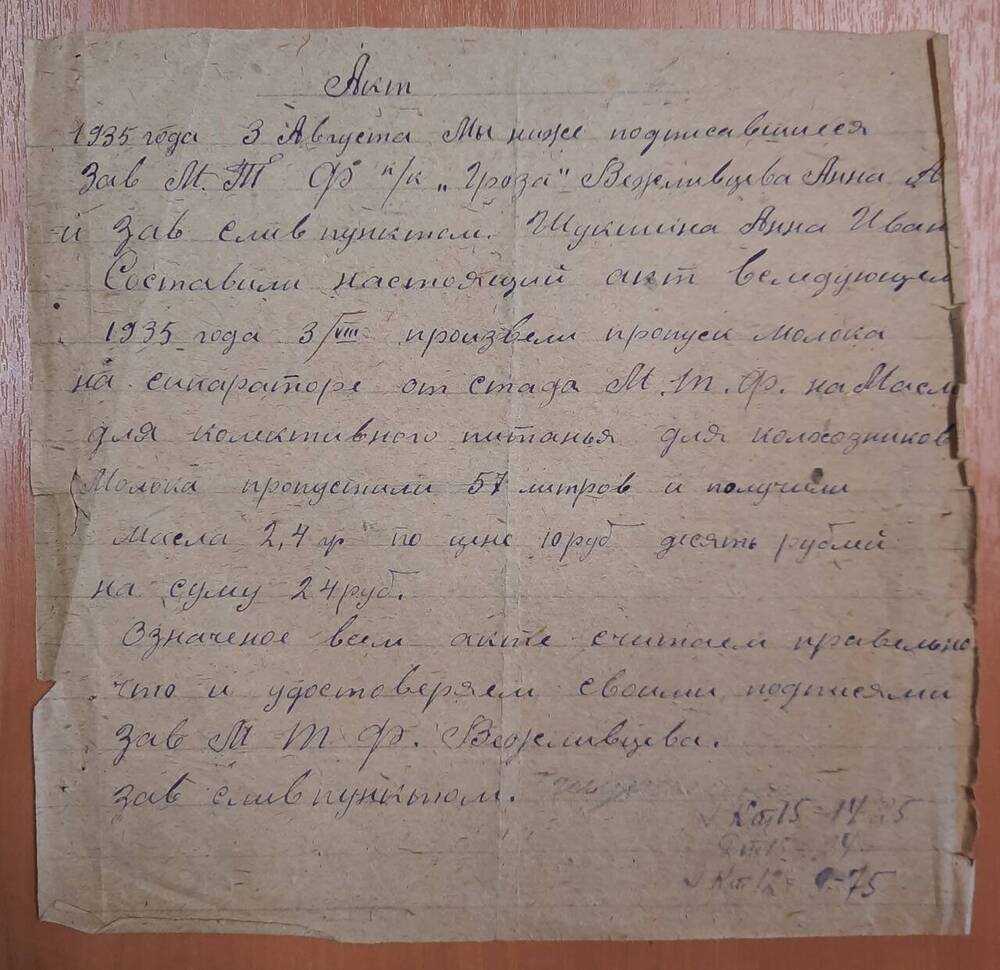 Акт
1935 года 3 Августа Мы ниже подписавшиеся
Зав М.Т Ф к/к „Гроза" Вежливцева Анна А
и Зав слив пунктом. Шукшина Анна Иван
Составили настоящий акт вследующем
1935 года 3/VIII произвели пропуск молока
на сипараторе от стада М.Т.Ф. на Масл
для колективного питанья для колхозников
Молока пропустили 57 литров и получили
масла 2,4 гр по цене 10 руб десять рублей
на суму 24 руб.
Означеное всем акте считаем правельно
что и удостоверяем своими подписями
Зав М Т Ф. Вежливцева.
Зав слив пунктом.
Кт 15 - 14 25
Кт 12 - 9-75